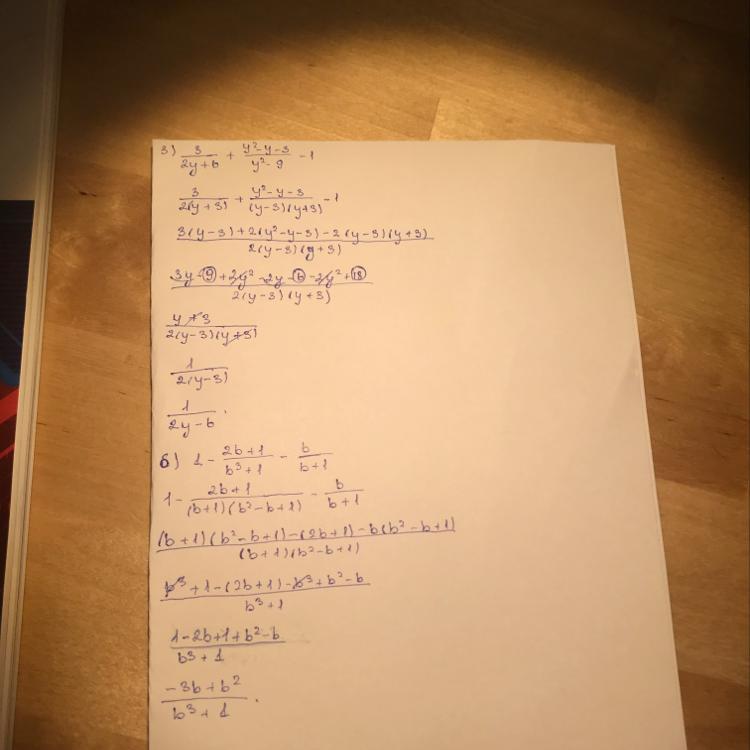 3) 3/(2y+6) + (y²-y-3)/(y²-9) -1
3/(2(y+3)) + (y²-y-3)/((y-3)(y+3)) -1
(3(y-3)+2(y²-y-3)-2(y-3)(y+3))/(2(y-3)(y+3))
(3y-9+2y²-2y-6-2y²+18)/(2(y-3)(y+3))
(y+3)/(2(y-3)(y+3))
1/(2(y-3))
1/(2y-6).
б) 1 - (2b+1)/(b³+1) - b/(b+1)
1 - (2b+1)/((b+1)(b²-b+1)) - b/(b+1)
((b+1)(b²-b+1)-(2b+1)-b(b²-b+1))/((b+1)(b²-b+1))
(b³+1-(2b+1)-b³+b²-b)/(b³+1)
(1-2b+1+b²-b)/(b³+1)
(-3b+b²)/(b³+1).